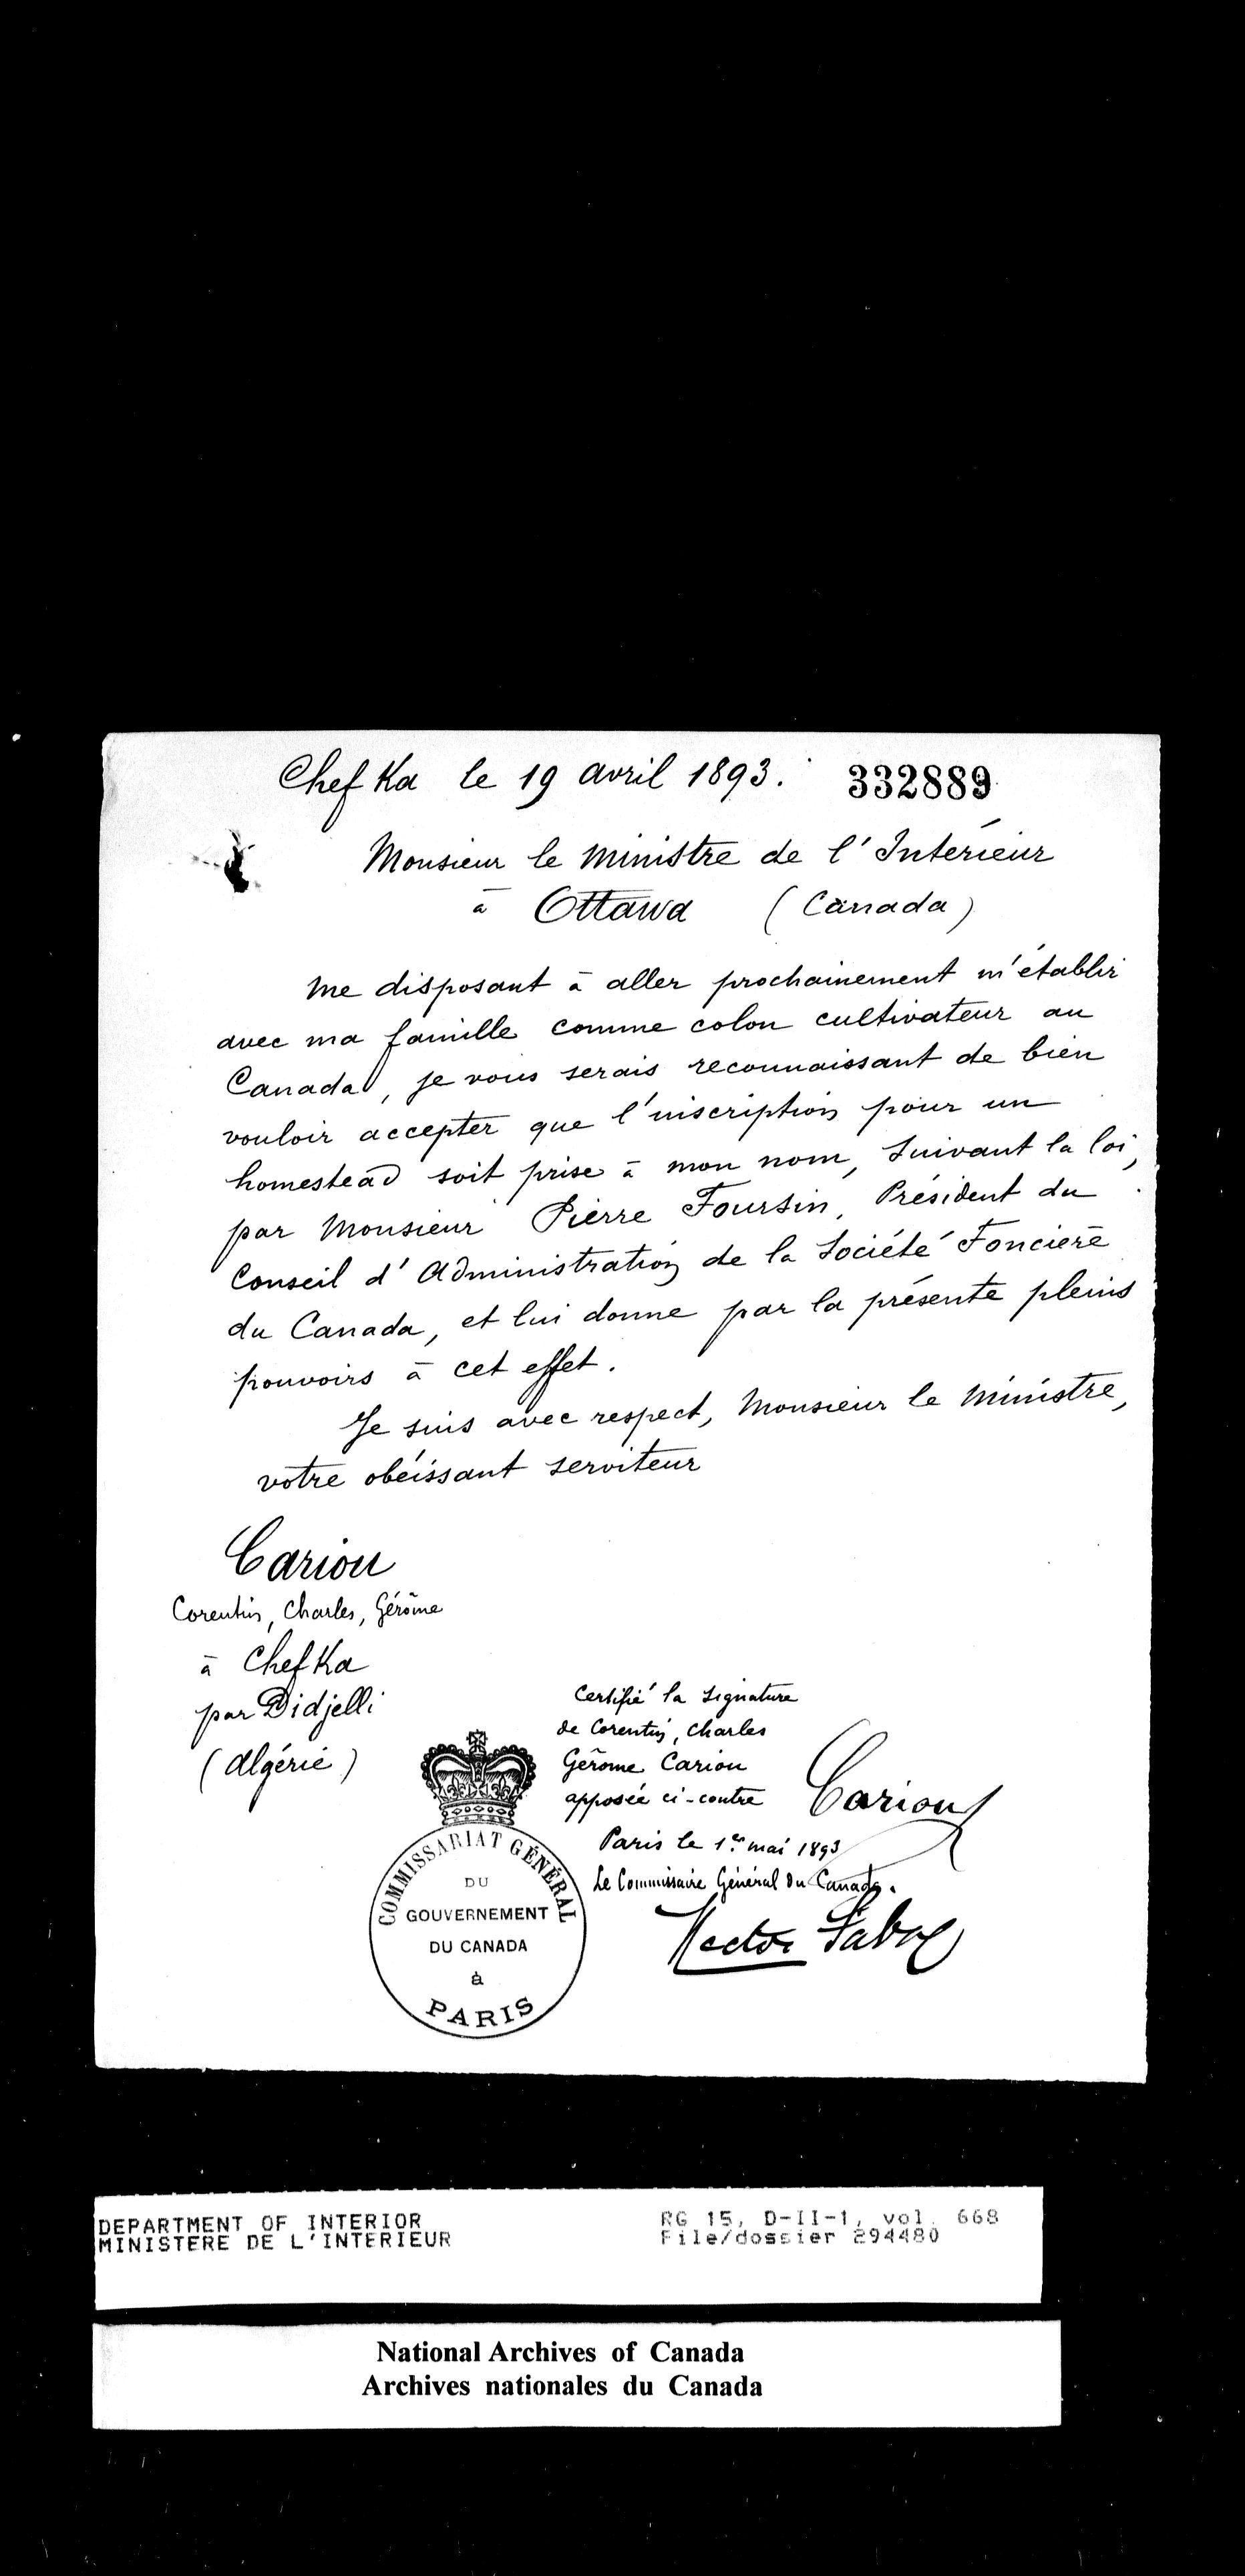 Chefka le 19 avril 1893. 332889
Monsieur le Ministre de l'Intérieur
à Ottawa (Canada)
Me disposant à aller prochainement m'établir
avec ma famille comme colon cultivateur au
Canada, je vous serais reconnaissant de bien
vouloir accepter que l'inscription pour un
homestead soit prise à mon nom, suivant la loi,
par Monsieur Pierre Foursin, Président du
Conseil d'Administration de la Société Foncière
du Canada, et lui donne par la présente pleins
pouvoirs à cet effet.
Je suis avec respect, Monsieur le Ministre,
votre obéissant serviteur
Cariou
Corentin, Charles, Gérôme
à Chefka
par Didjelli
(Algérie)
Certifié la signature
de Corentin, Charles
Gérôme Cariou
apposée ci-contre Cariou
Paris le 1er mai 1893
Le Commissaire Général du Canada.
Hector Fabre
COMMISSARIAT GÉNÉRAL
DU
GOUVERNEMENT
DU CANADA
à
PARIS
DEPARTMENT OF INTERIOR RG 15, D-II-1, vol. 668
MINISTERE DE L'INTERIEUR File/dossier 294480
National Archives of Canada
Archives nationales du Canada